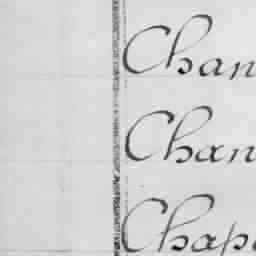 Chan
Chan
Chap